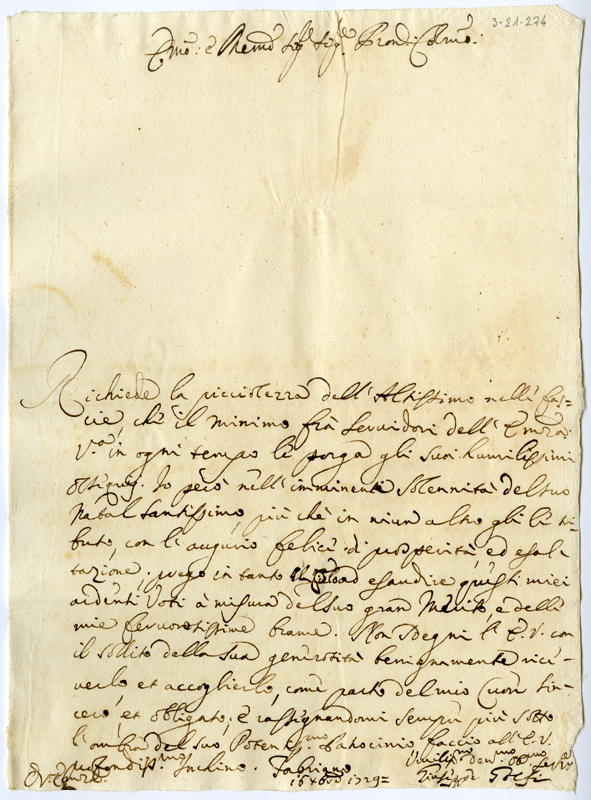 3-21-274
Emo: e Remo Sigr Sigr Pron: Colmo:
Richiede la picciolezza dell'Altissimo nelle fas=
cie, che il minimo frà servidori dell'Emza
Va in ogni tempo le porga gli suoi humilissimi
ossequij. Io però nell'imminente solennità del suo
Natal santissimo, più che in niun altro gli li tri
buto, con l'augurio felice di prosperità, ed esal=
tazione; prego in tanto esaudire questi miei
ardenti Voti à misura del suo gran Merito, e delle
mie fervorosissime brame. Non sdegni l'E.V. con
il sollito della sua generosità benignamente rice=
verlo et accoglierlo, come parto del mio Cuore sin=
cero, et obligato; e rassegnandomi sempre più sotto
l'ombra del suo Potentissmo Patrocinio, faccio all'E.V.
profondissmo Inchino. Fabriano
1729=
Umilismo devmo obmo servre
Giuseppe